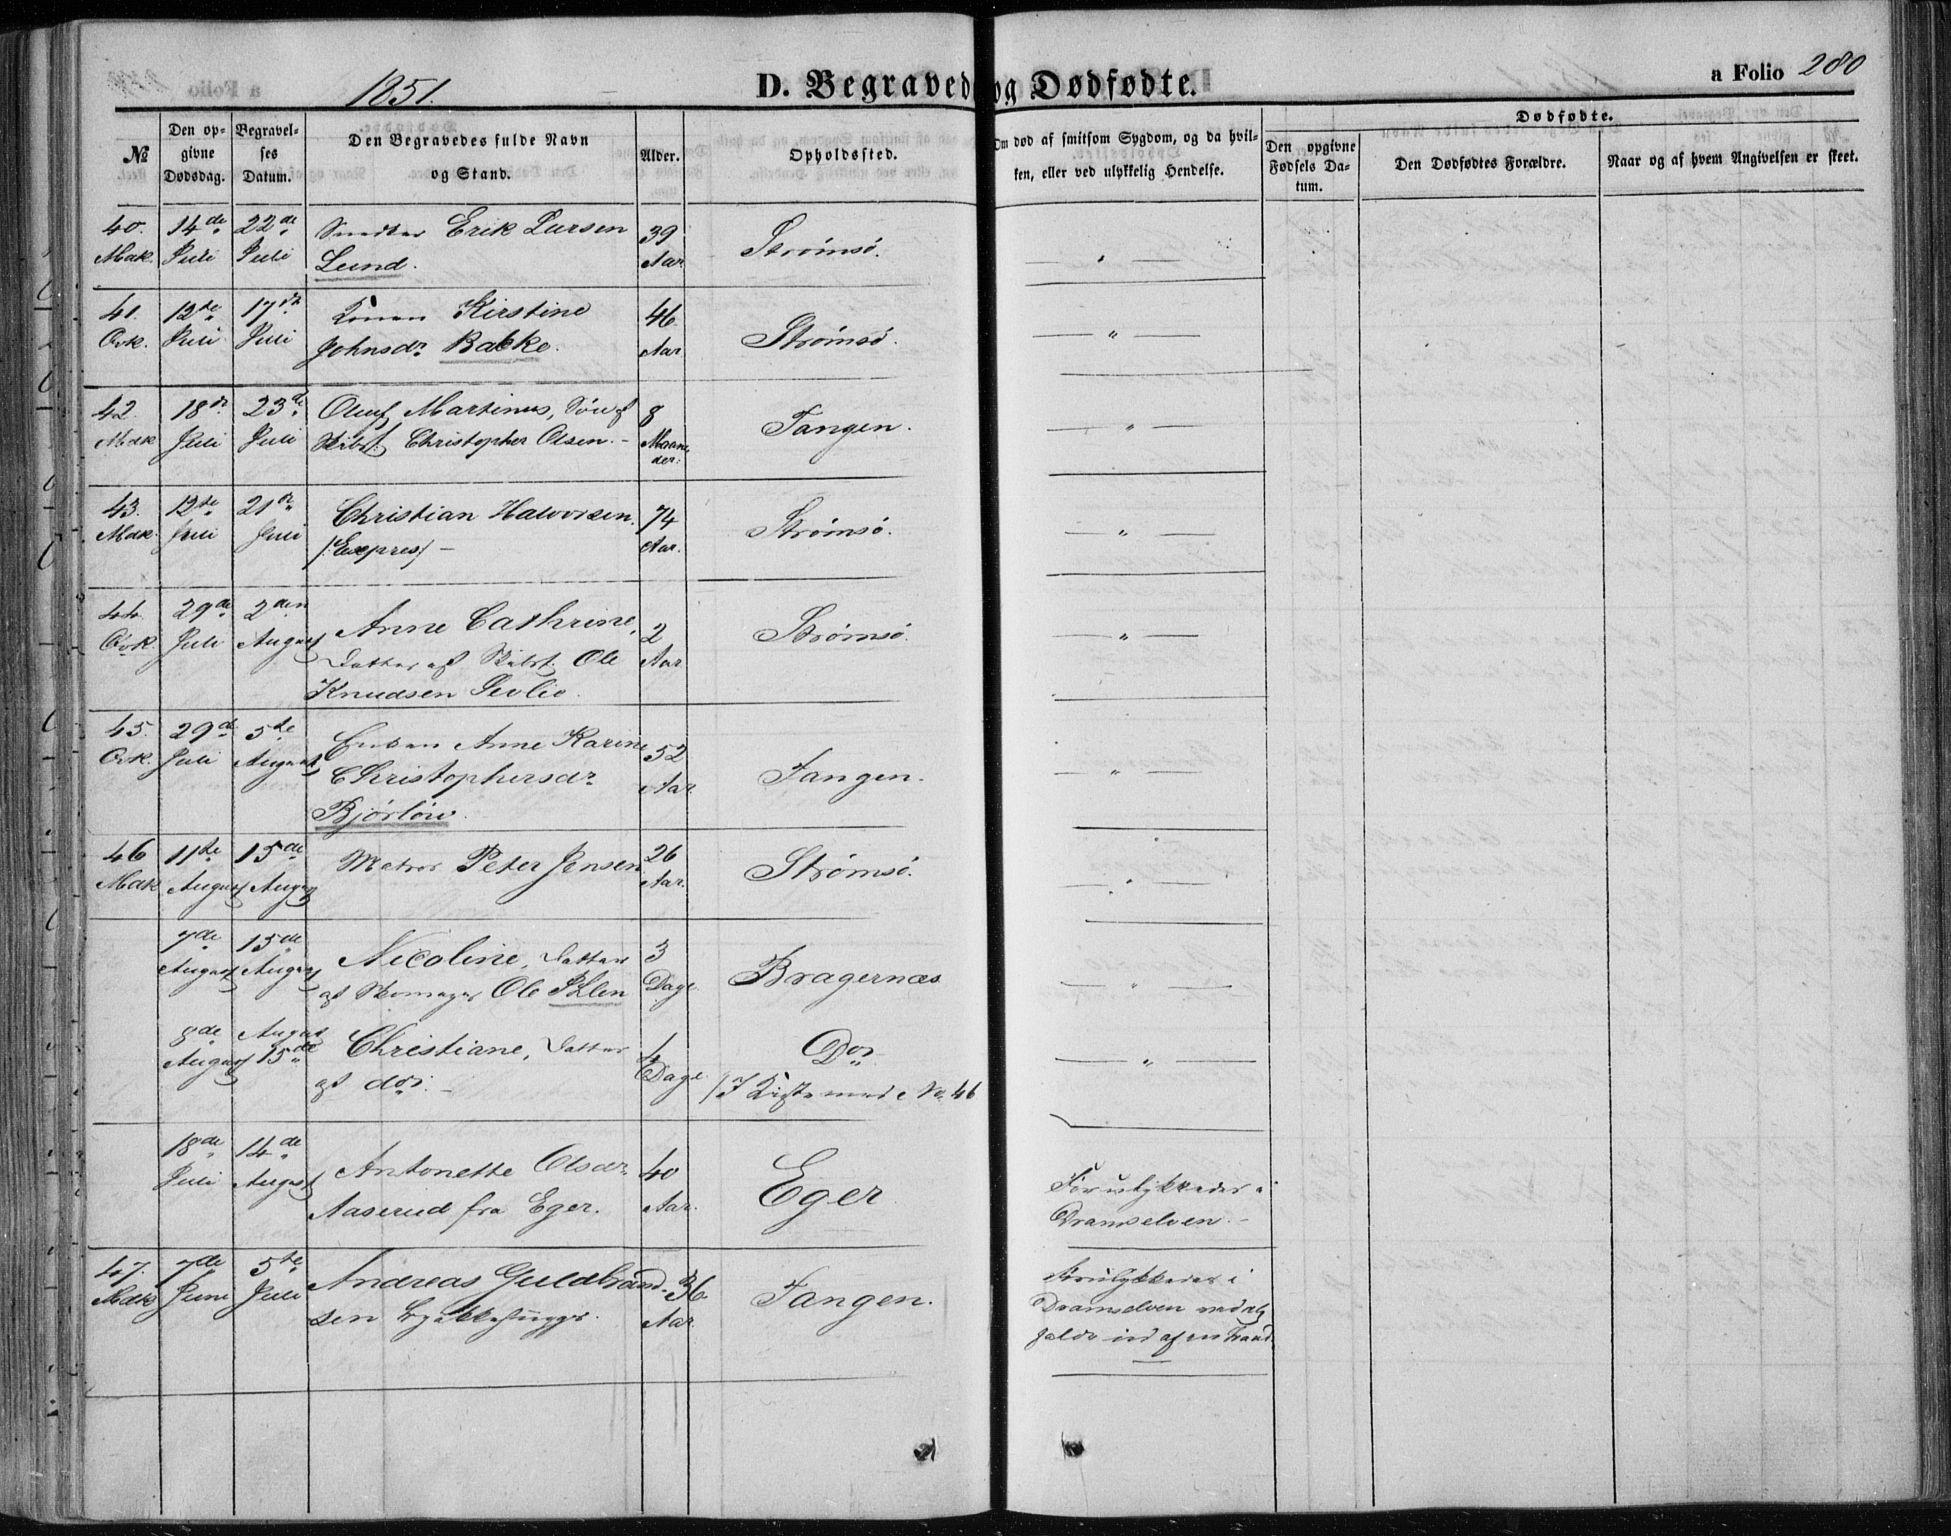 1851.
D. Begravede og Dødfødte.
a Folio 280
№
Den opgivne Dødsdag.
Begravelses Datum.
Den Begravedes fulde Navn og Stand.
Alder.
Opholdssted.
Om død af smitsom Sygdom, og da hvilken, eller ved ulykkelig Hendelse.
Dødfødte.
Den opgivne Fødsels Datum.
Den Dødfødtes Forældre.
Naar og af hvem Angivelsen er skeet.
40. 14de 22de Erik Larsen 39
Mdk. Juli Juli Lund. Aar Strømsø. — " —
41. 12te 17de Konen Kirstine 46
Qvk. Juli Juli Johnsdr Bakke. Aar Strømsø. — " —
42. 18de 23de Oluf Martinus, Søn af 8
Mdk Juli Juli Skibst. Christopher Olsen. – Maaneder: Tangen. — " —
43. 12te 21de Christian Halvorsen. 74
Mdk. Juli Juli /:Expres/ – Aar. Strømsø. — " —
44. 29de 2den Anne Cathrine, 2
Qvk. Juli August Datter af Skibst. Ole Aar Strømsø. — " —
Knudsen
45. 29de 5te Enken Anne Karine 52
Qvk. Juli August Christophersdr Aar Tangen. — " —
46 11te 15de Matros Peter Jensen 26
Mdk August August Aar. Strømsø. — " —
7de 15de Nicoline, Datter 3
August August af Skomager Ole Dage Bragernæs — " —
8de August Christiane, Datter 4 Do
August 15de af do. – Dage /I Kiste med No. 46 — " —
18de 14de Antonette Olsdr 40
Juli August Aaserud fra Eger. Aar. Eger Forulykkedes i
Dramselven. –
47. 7de 5te Andreas Guldbrand- 36
Mdk Juni Juli sen Aar Tangen. Forulykkedes i
Dramselven ved at
falde ud af en